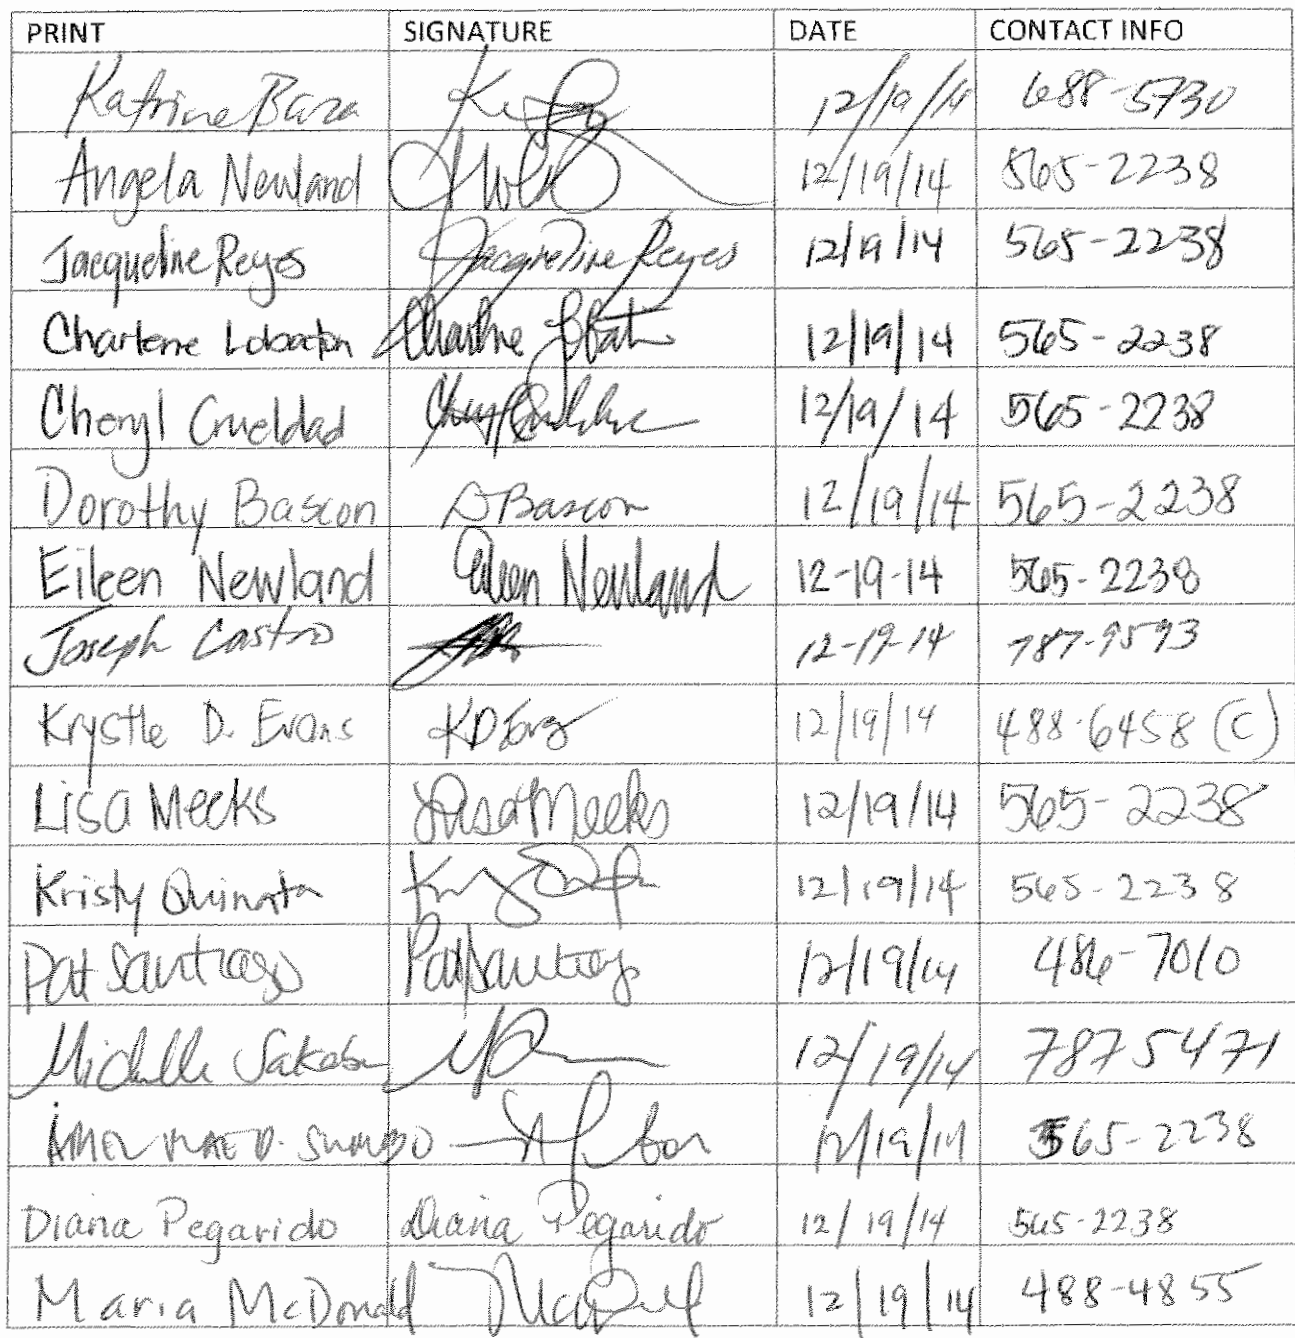 PRINT SIGNATURE DATE CONTACT INFO
Katrine Baza 12/19/14 688-5730
Angela Newland 12/19/14 565-2238
Jacqueline Reyes Jacqueline Reyes 12/19/14 565-2238
Charlene Lobaton Charlene 12/19/14 565-2238
Cheryl Crueldad 12/19/14 565-2238
Dorothy Bascon D Bascon 12/19/14 565-2238
Eileen Newland Eileen Newland 12-19-14 565-2238
Joseph Castro 12-19-14 787-9593
Krystle D. Evans 12/19/14 488-6458 (C)
Lisa Meeks Lisa Meeks 12/19/14 565-2238
Kristy Quinata 12/19/14 565-2238
Pat Santiago Pat Santiago 12/19/14 486-7010
Michelle 12/19/14 7875471
12/19/14 565-2238
Diana Pegarido Diana Pegarido 12/19/14 565-2238
Maria McDonald 12/19/14 488-4855